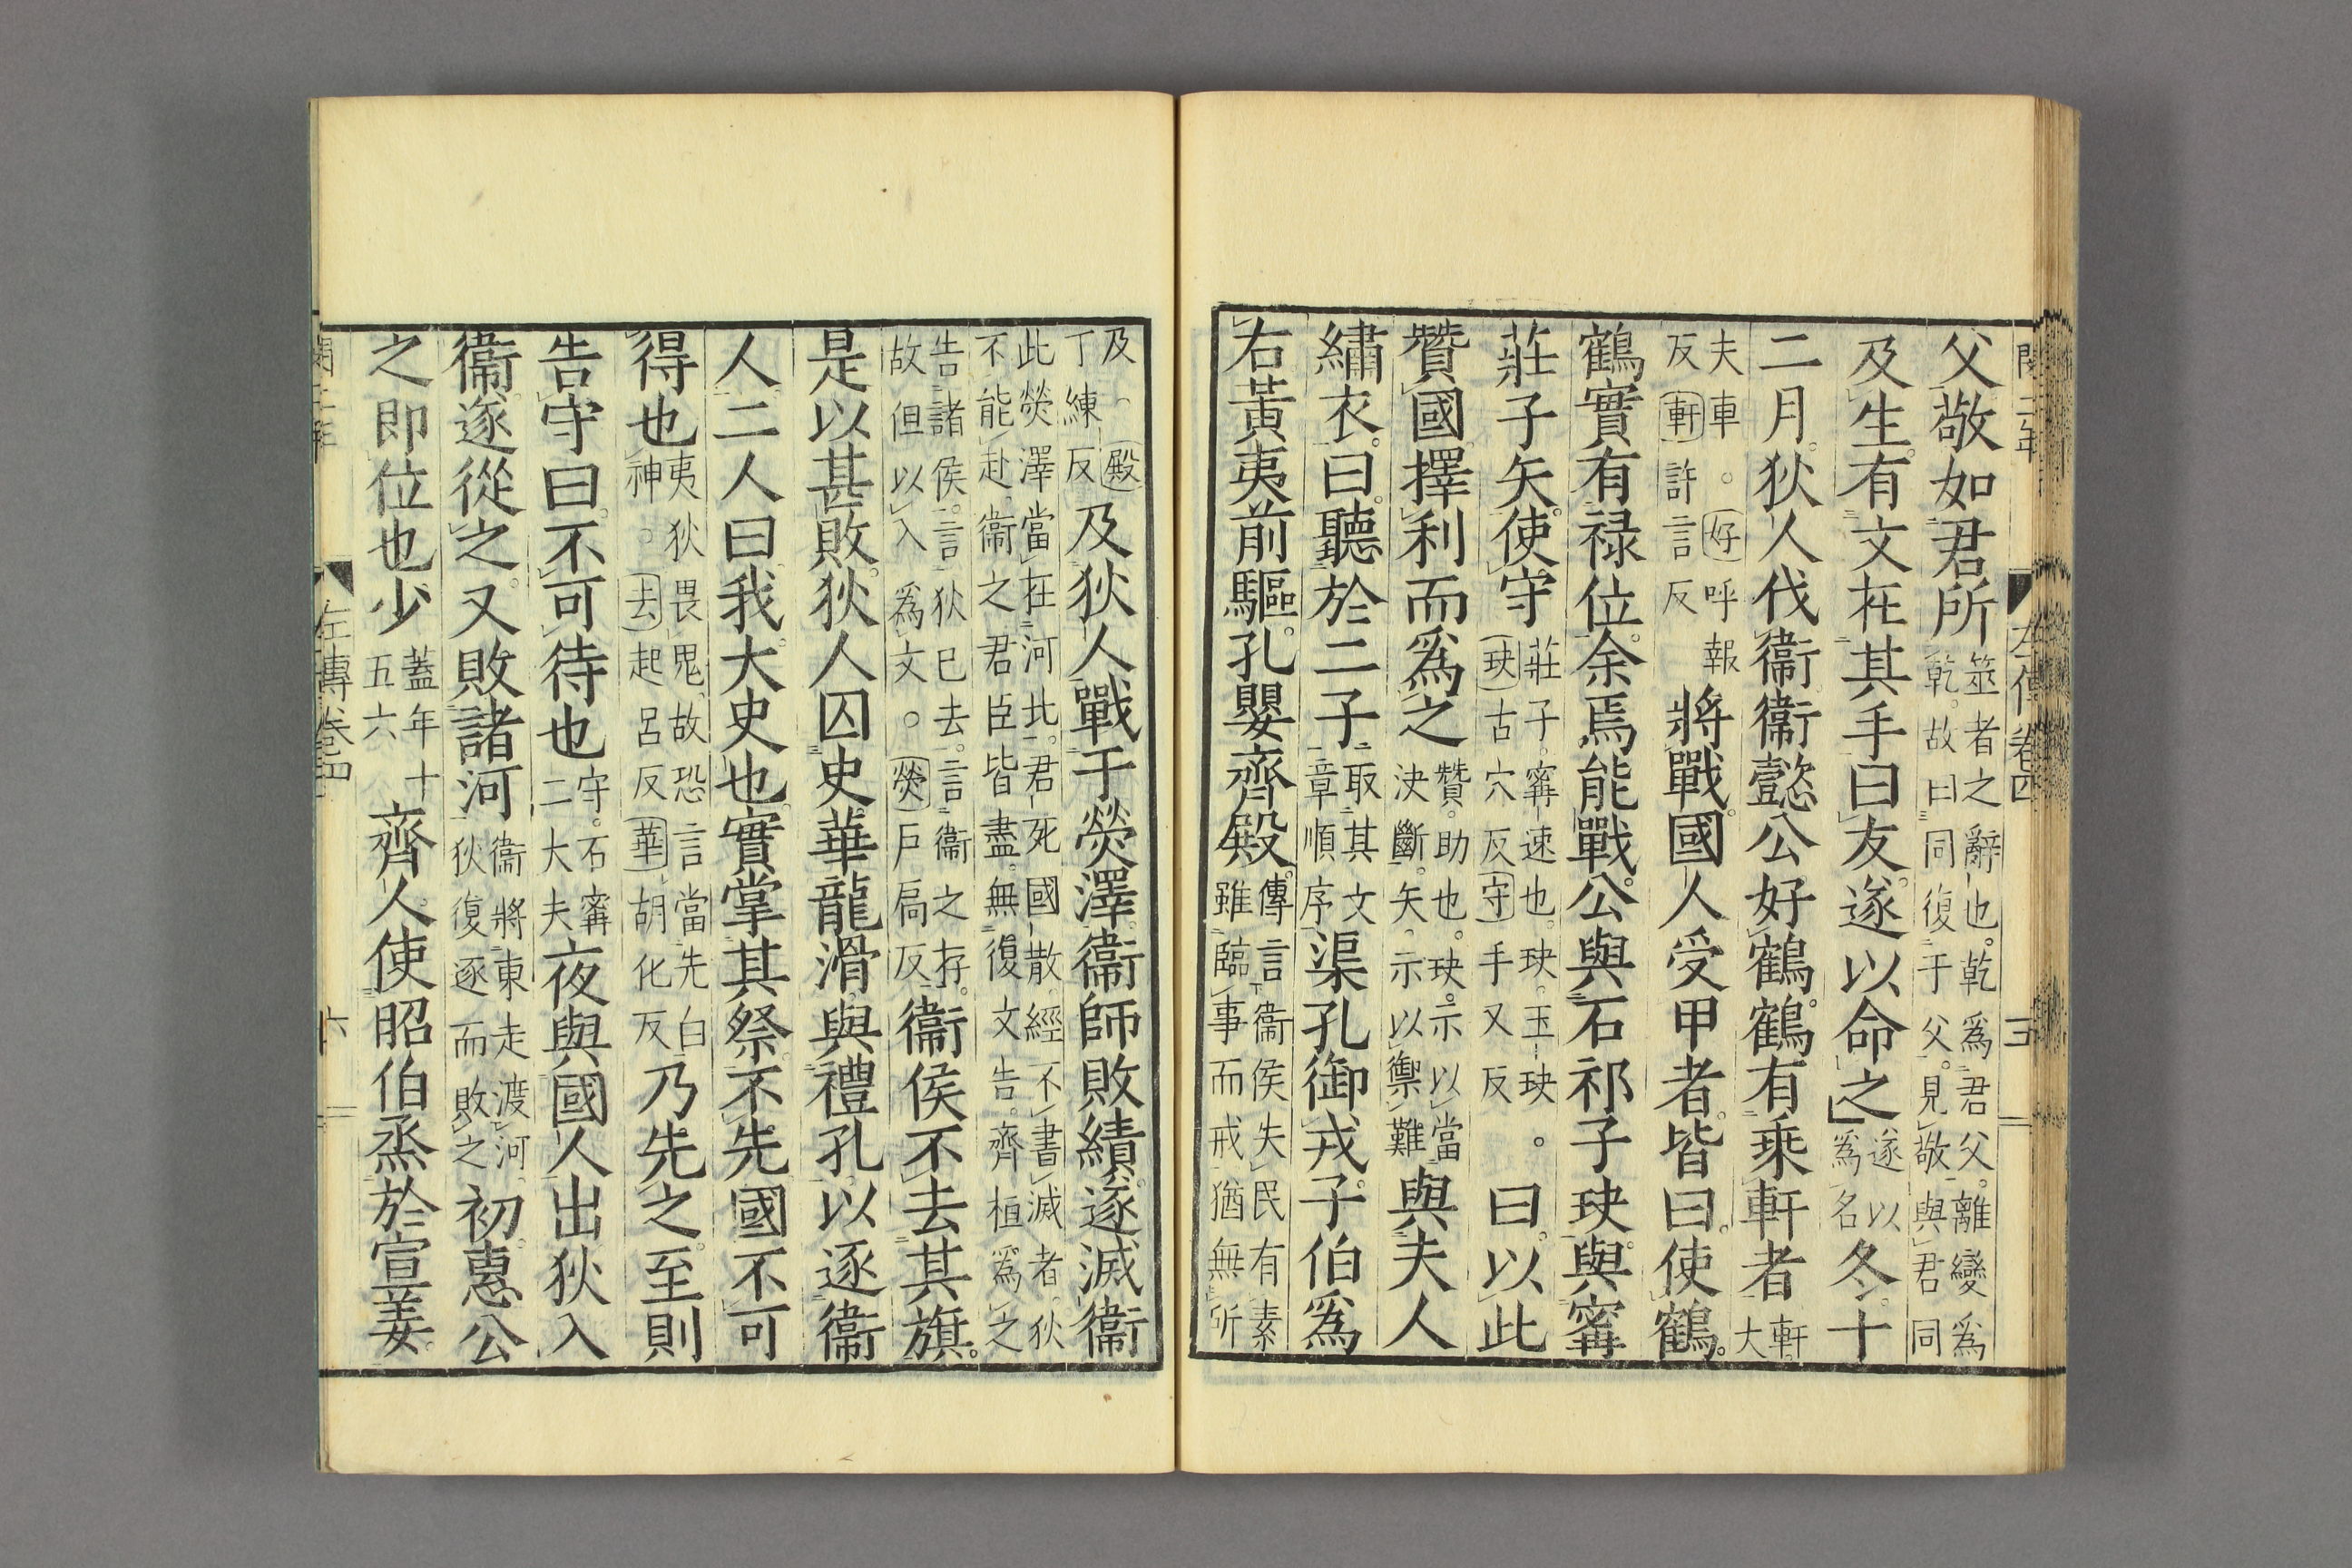 父敬如君所筮者之辭也。乾爲君父。離變爲乾。故曰同復于父。見敬與君同
及生。有文在其手曰友。遂以命之遂以爲名冬。十
二月。狄人伐衞。衞懿公好鶴。鶴有乘軒者軒大
夫車。好呼報反軒許言反將戰。國人受甲者。皆曰。使鶴。
鶴實有祿位。余焉能戰。公與石祁子玦。與甯
莊子矢。使守莊子。甯速也。玦。玉玦。玦古穴反守手又反曰。以此
贊國。擇利而爲之贊。助也。玦。示以當決斷。矢。示以禦難與夫人
繡衣。曰。聽於二子取其文章順序渠孔御戎。子伯爲
右。黃夷前驅。孔嬰齊殿。傳言衞侯失民有素雖臨事而戒猶無所
及。殿丁練反及狄人戰于熒澤。衞師敗績。遂滅衞
此熒澤當在河北。君死國散。經不書滅者。狄不能赴。衞之君臣皆盡。無復文告。齊桓爲之
告諸侯。言狄已去。言衞之存。故但以入爲文。熒戶扃反衞侯不去其旗。
是以甚敗。狄人囚史華龍滑與禮孔。以逐衞
人。二人曰。我大史也。實掌其祭。不先。國不可
得也夷狄畏鬼。故恐言當先白神。去起呂反華胡化反乃先之。至則
告守曰。不可待也守。石甯二大夫夜與國人出。狄入
衞。遂從之。又敗諸河衞將東走渡河。狄復逐而敗之初。惠公
之即位也少蓋年十五六齊人使昭伯烝於宣姜。
閔二年
左傳卷四
三
閔二年
左傳卷四
六